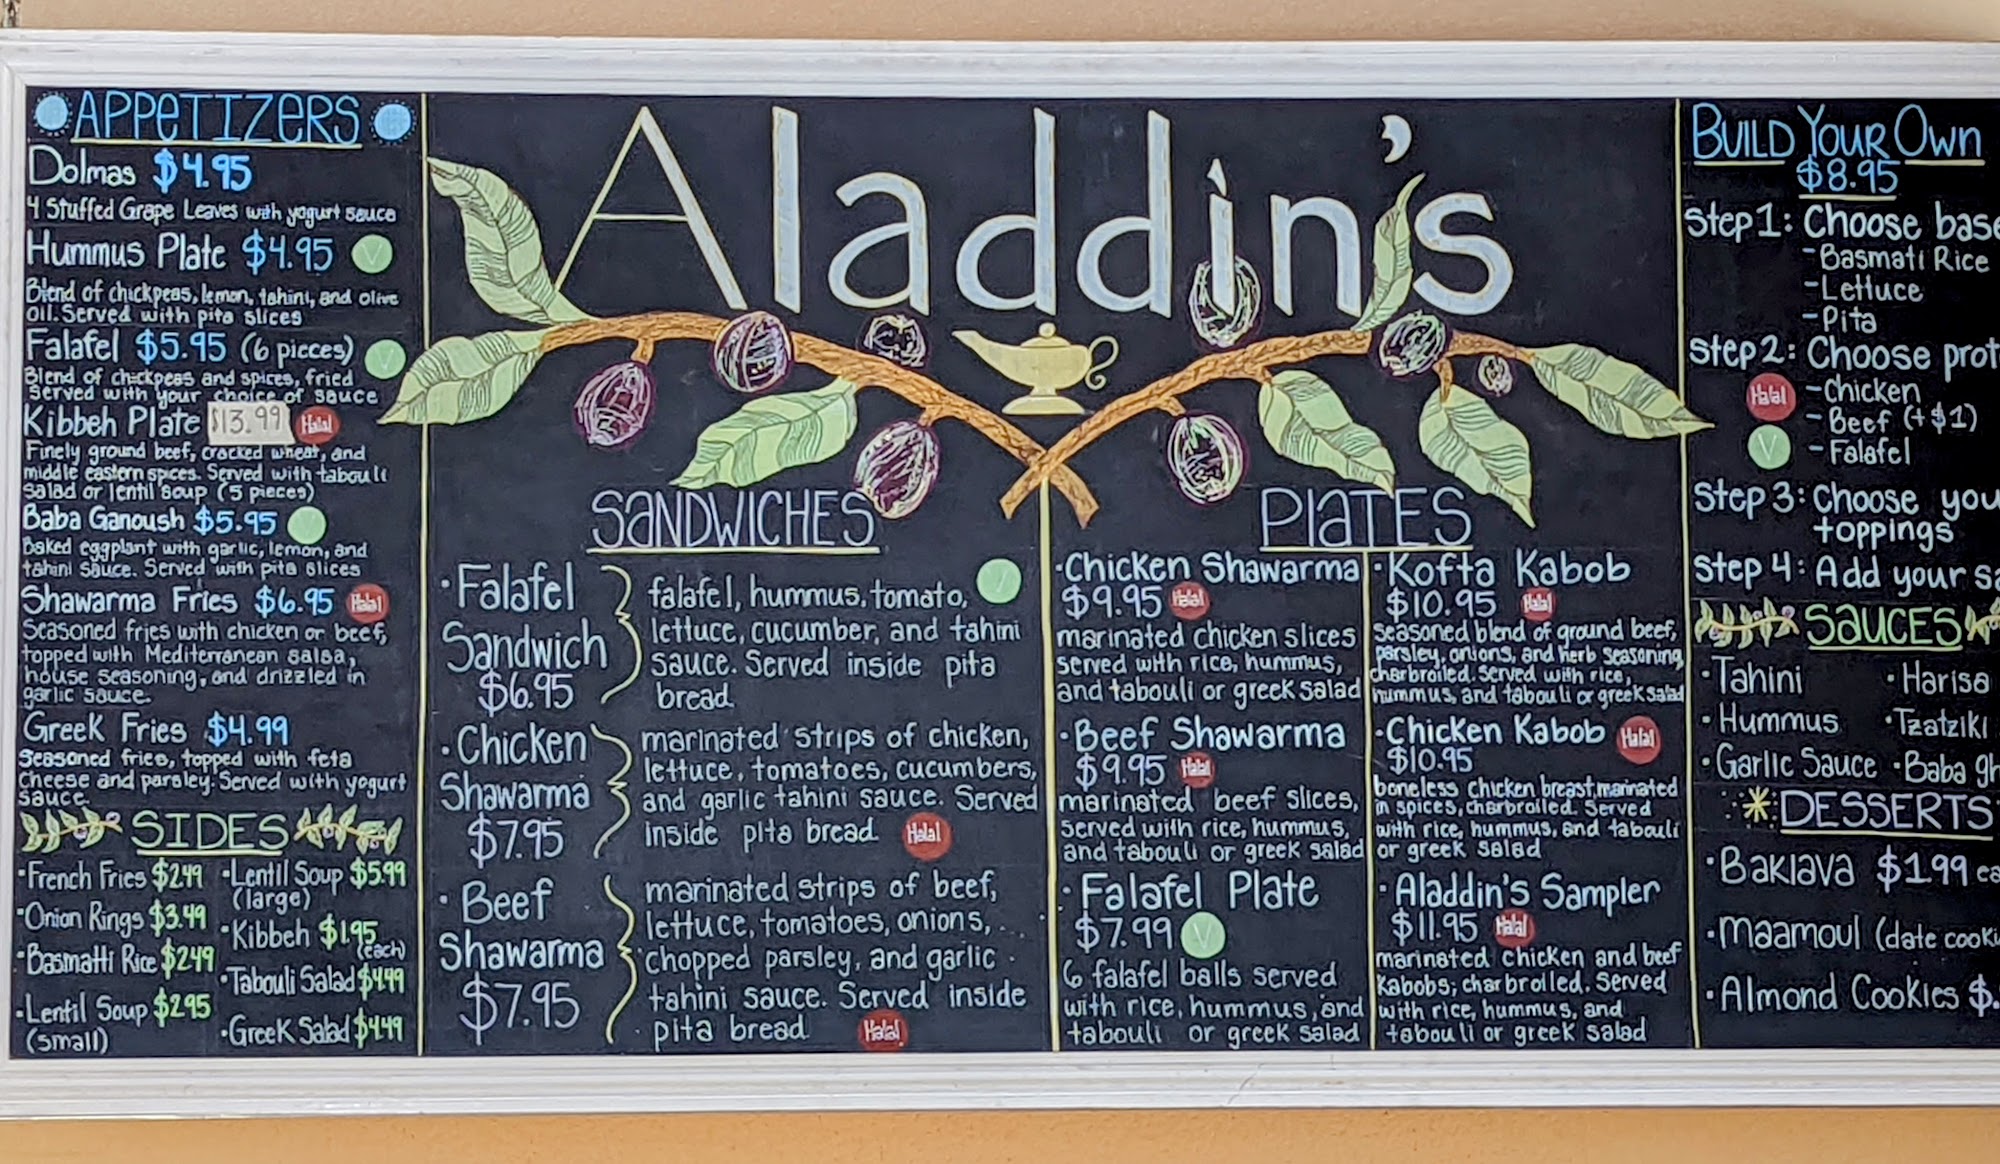 APPETIZERS
Dolmas $4.95
4 Stuffed Grape Leaves with yogurt sauce
Hummus Plate $4.95 V
Blend of chickpeas, lemon, tahini, and olive
oil. Served with pita slices
Falafel $5.95 (6 pieces) V
Blend of chickpeas and spices, fried
Served with your choice of sauce
Kibbeh Plate $13.99 Halal
Finely ground beef, cracked wheat, and
middle eastern spices. Served with tabouli
Salad or lentil soup (5 pieces)
Baba Ganoush $5.95 V
Baked eggplant with garlic, lemon, and
tahini sauce. Served with pita slices
Shawarma Fries $6.95 Halal
Seasoned fries with chicken or beef,
topped with Mediterranean salsa,
house seasoning, and drizzled in
garlic sauce.
Greek Fries $4.99
Seasoned fries, topped with feta
Cheese and parsley. Served with yogurt
sauce.
SIDES
·French Fries $2.49
·Onion Rings $3.49
·Basmatti Rice $2.49
·Lentil Soup $2.95
(small)
·Lentil Soup $5.99
(large)
·Kibbeh $1.95
(each)
·Tabouli Salad $4.49
·Greek Salad $4.49
Aladdin's
SANDWICHES
·Falafel
Sandwich
$6.95
falafel, hummus, tomato, V
lettuce, cucumber, and tahini
sauce. Served inside pita
bread
·Chicken
Shawarma
$7.95
marinated strips of chicken,
lettuce, tomatoes, cucumbers,
and garlic tahini sauce. Served
inside pita bread Halal
·Beef
Shawarma
$7.95
marinated strips of beef,
lettuce, tomatoes, onions,
chopped parsley, and garlic
tahini sauce. Served inside
pita bread Halal
PLATES
·Chicken Shawarma
$9.95 Halal
marinated chicken slices
served with rice, hummus,
and tabouli or greek salad
·Beef Shawarma
$9.95 Halal
marinated beef slices,
served with rice, hummus,
and tabouli or greek salad
·Falafel Plate
$7.99 V
6 falafel balls served
with rice, hummus, and
tabouli or greek salad
·Kofta Kabob
$10.95 Halal
Seasoned blend of ground beef,
parsley, onions, and herb seasoning,
charbroiled. Served with rice,
hummus, and tabouli or greek salad
·Chicken Kabob Halal
$10.95
boneless chicken breast, marinated
in spices, charbroiled. Served
with rice, hummus, and tabouli
or greek salad
·Aladdin's Sampler
$11.95 Halal
marinated chicken and beef
Kabobs; charbroiled. Served
with rice, hummus, and
tabouli or greek salad
BUILD YOUR OWN
$8.95
Step 1: Choose base
-Basmati Rice
-Lettuce
-Pita
Step 2: Choose prot
Halal -Chicken
-Beef (+$1)
V -Falafel
Step 3: Choose you
toppings
Step 4: Add your sa
SAUCES
·Tahini ·Harisa
·Hummus ·Tzatziki
·Garlic Sauce ·Baba gh
DESSERTS
·Baklava $1.99 ea
·Maamoul (date cooki
·Almond Cookies $.